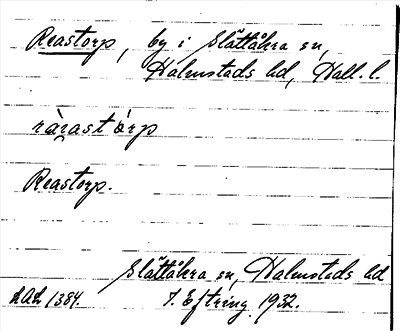 Reastorp, by i Slättåkra sn,
Halmstads hd, Hall. l.
ràrast òrp
Reastorp.
Slättåkra sn, Halmstads hd
AOH 1384. F. Eftring 1932.